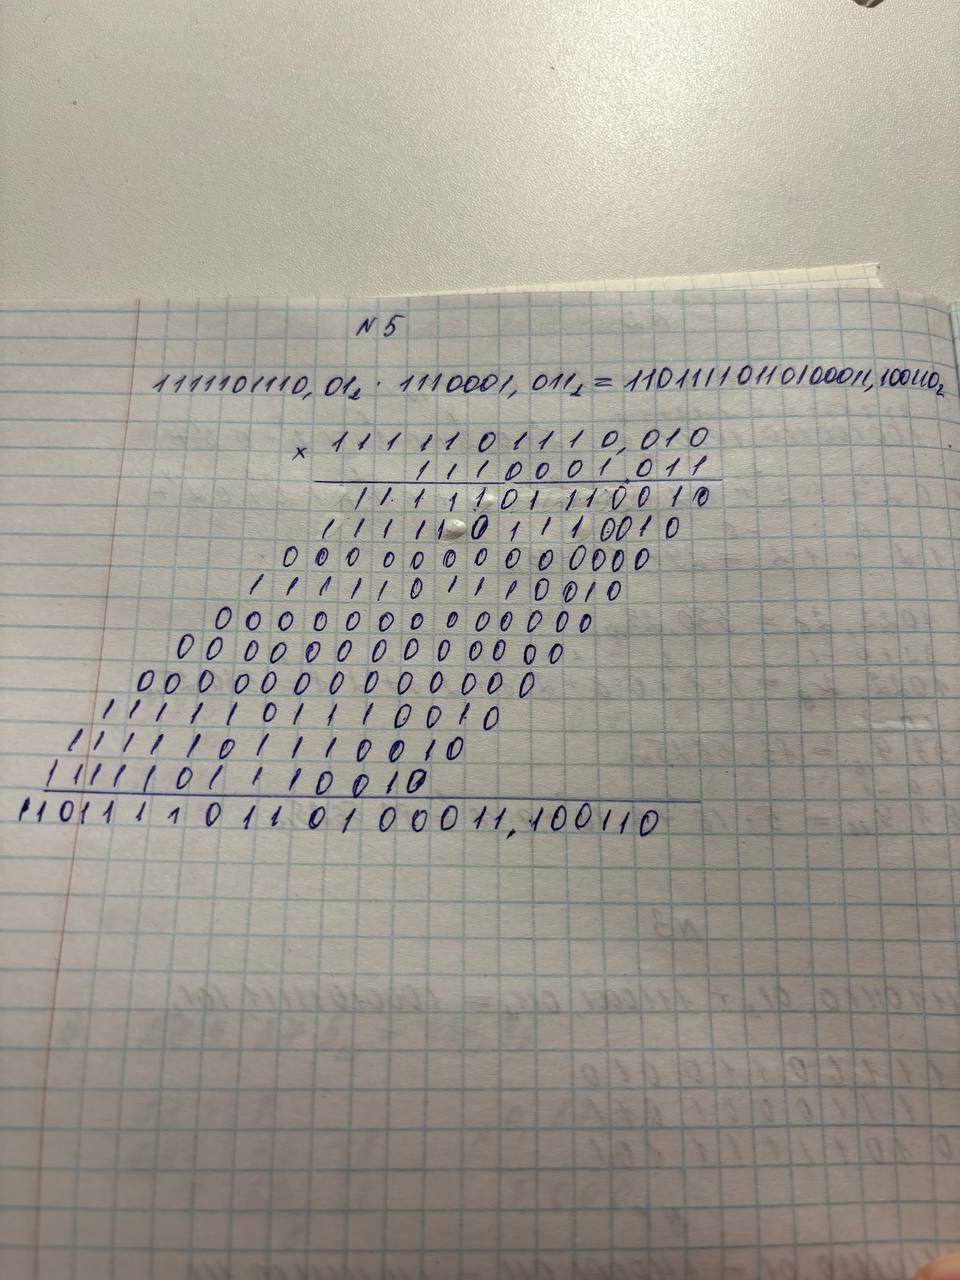 N 5
1111101110,01₂ · 1110001,011₂ = 11011110110100011,100110₂
× 1111101110,010
1110001.011
1111101110010
1111101110010
0000000000000
1111101110010
0000000000000
0000000000000
0000000000000
1111101110010
1111101110010
1111101110010
11011110110100011,100110